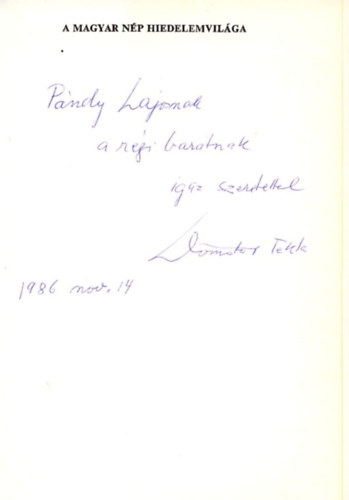 A MAGYAR NÉP HIEDELEMVILÁGA
Pándy Lajosnak
a régi barátnak
igaz szeretettel
Dömötör Tekla
1986 nov. 14